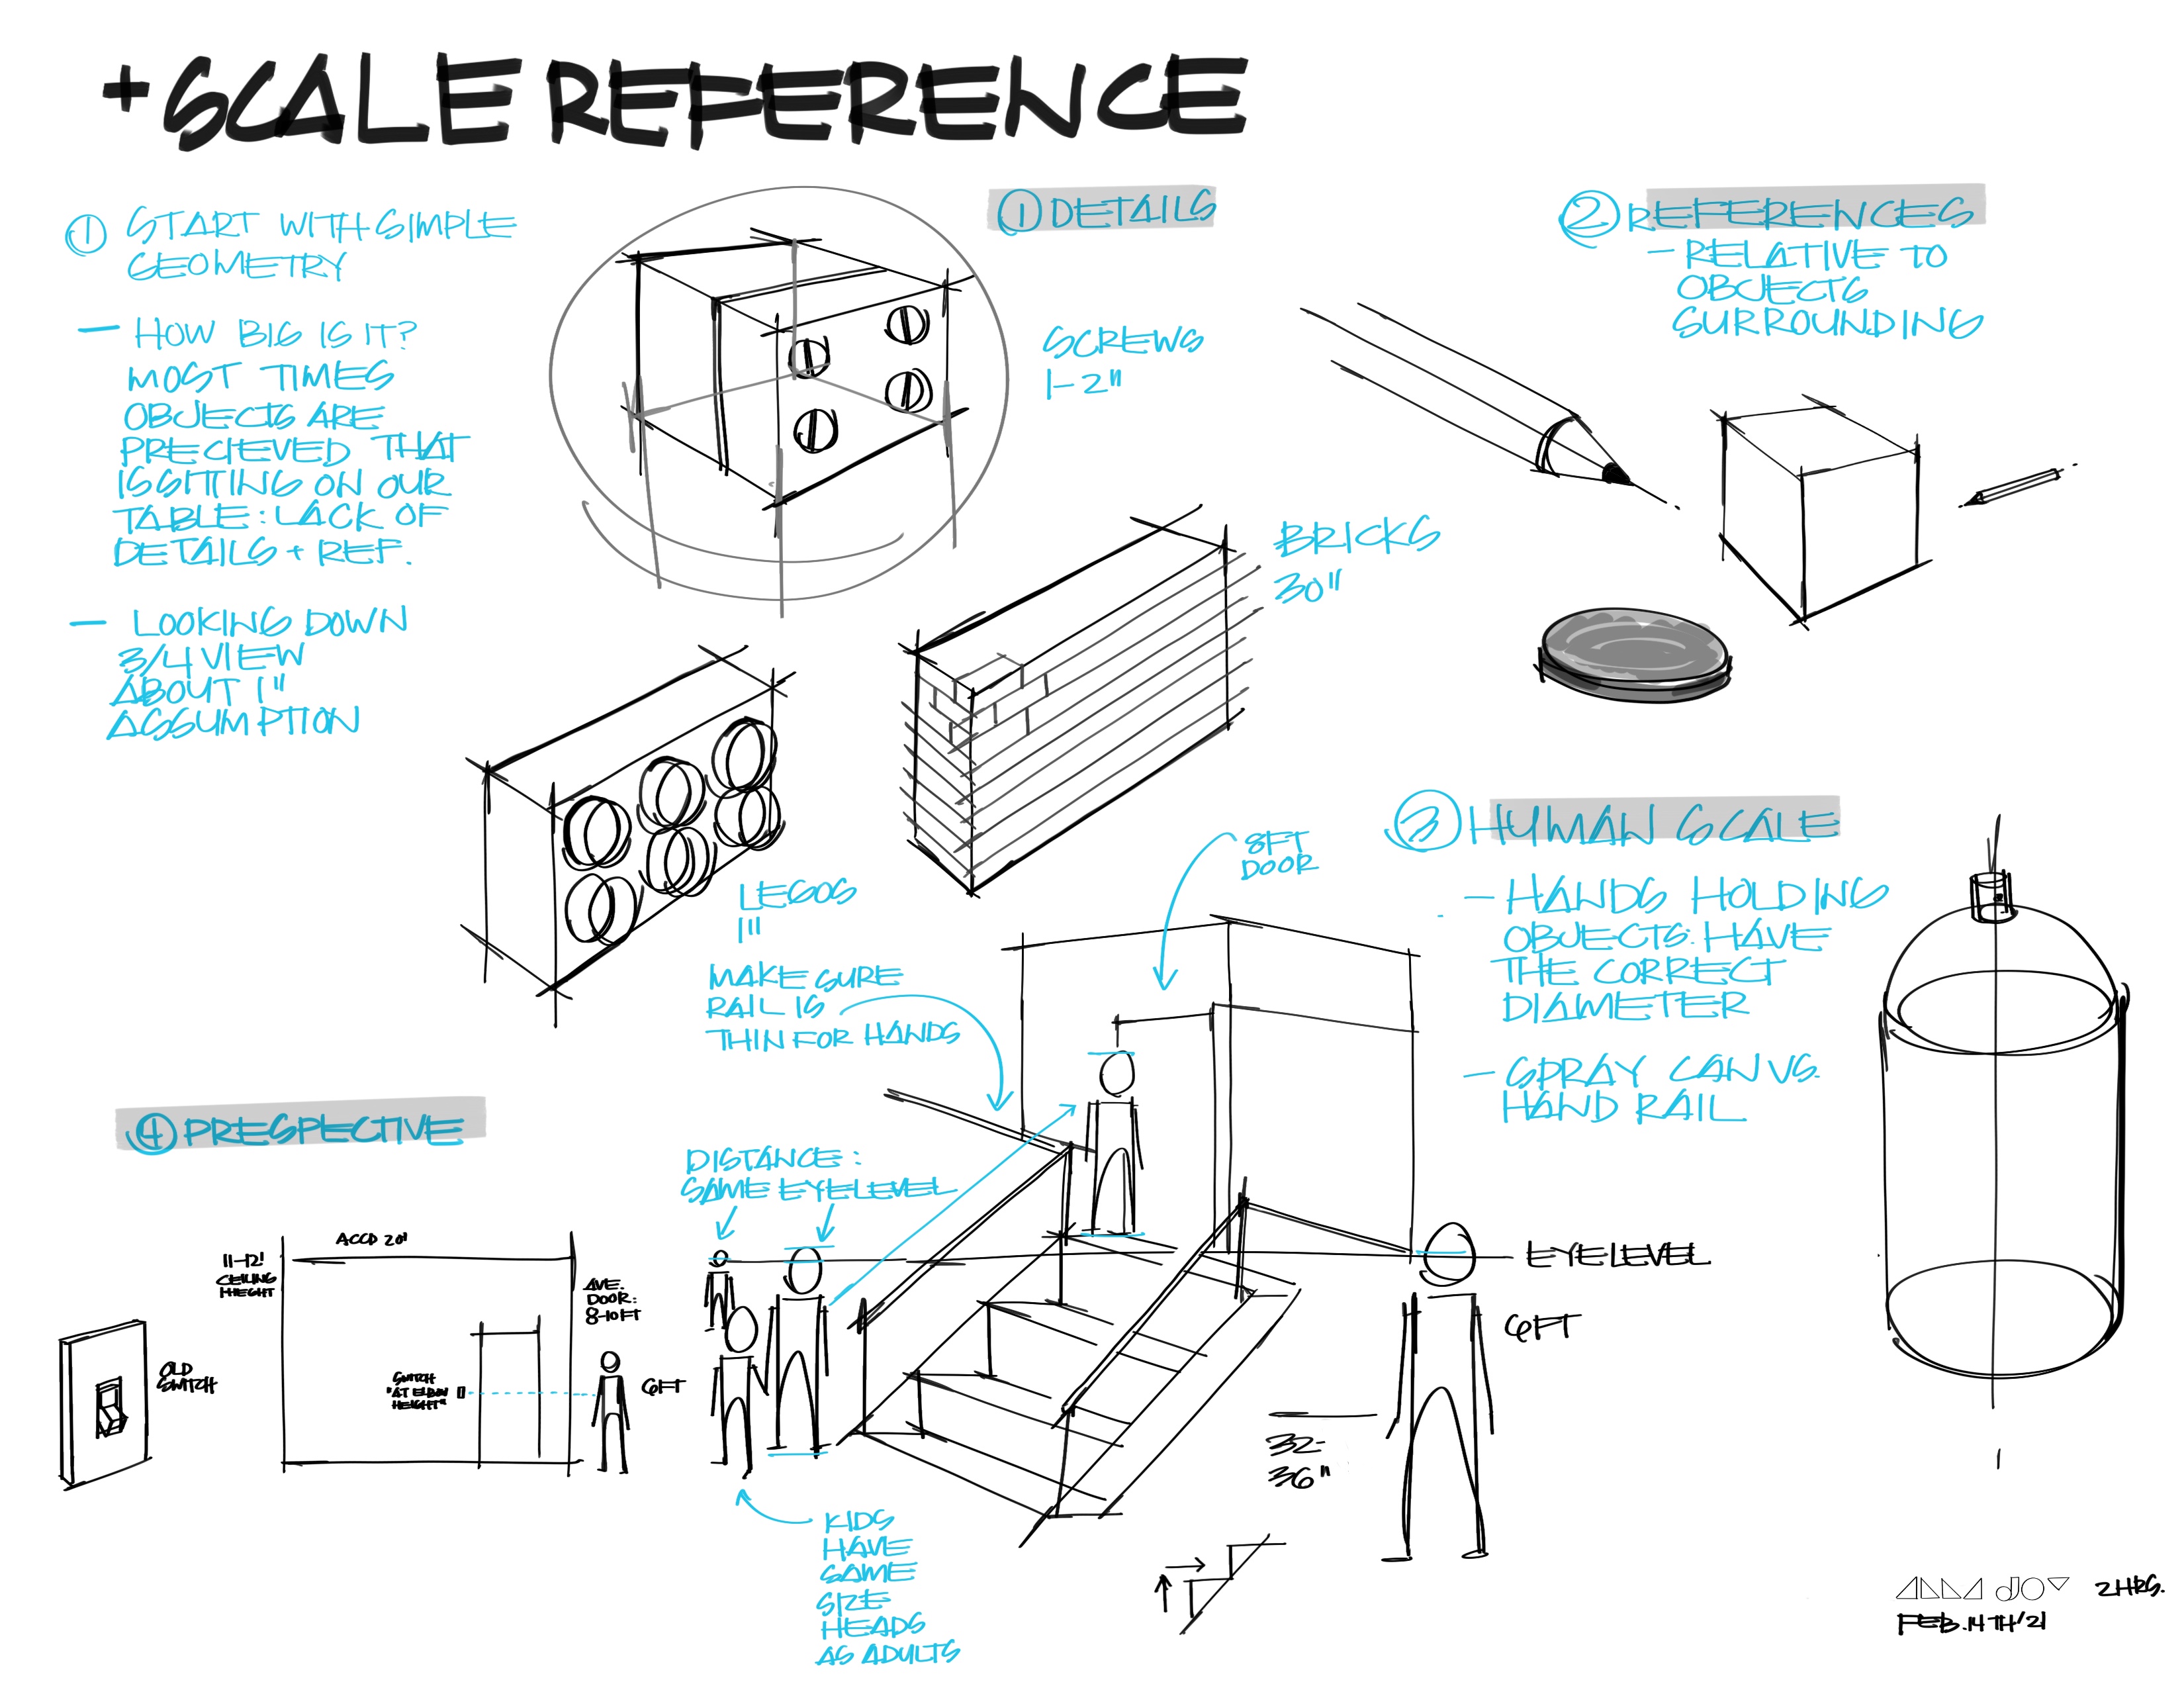 + SCALE REFERENCE
① START WITH SIMPLE
GEOMETRY
— HOW BIG IS IT?
MOST TIMES
OBJECTS ARE
PRECIEVED THAT
IS SITTING ON OUR
TABLE: LACK OF
DETAILS + REF.
— LOOKING DOWN
3/4 VIEW
ABOUT 1"
ASSUMPTION
① DETAILS
SCREWS
1-2"
BRICKS
30"
LEGOS
1"
② REFERENCES
- RELATIVE TO
OBJECTS
SURROUNDING
③ HUMAN SCALE
- HANDS HOLDING
OBJECTS: HAVE
THE CORRECT
DIAMETER
- SPRAY CAN VS.
HAND RAIL
8FT
DOOR
MAKE SURE
RAIL IS
THIN FOR HANDS
④ PRESPECTIVE
DISTANCE:
SAME EYELEVEL
ACCD 20'
11-12'
CEILING
HIEGHT
AVE.
DOOR:
8-10FT
OLD
SWITCH
SWITCH
"AT ELBOW
HEIGHT"
6FT
EYELEVEL
6FT
32-
36"
KIDS
HAVE
SAME
SIZE
HEADS
AS ADULTS
2HRS.
FEB.14TH/21